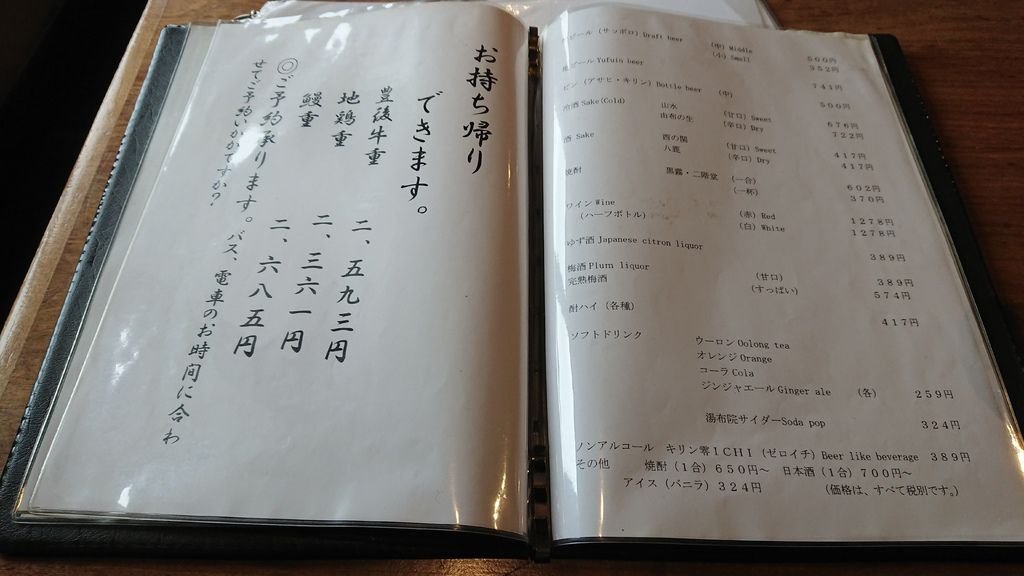 お持ち帰り
できます。
豊後牛重 二、五九三円
地鶏重 二、三六一円
鰻重 二、六八五円
◎ご予約承ります。バス、電車のお時間に合わ
せてご予約いかがですか?
生ビール(サッポロ)Draft beer (中)Middle 560円
(小)Small 352円
ビール Yufuin beer 741円
ビン(アサヒ・キリン)Bottle beer (中) 560円
冷酒 Sake(Cold) 山水 (甘口)Sweet 676円
由布の生 (辛口)Dry 722円
酒 Sake 西の関 (甘口)Sweet 417円
八鹿 (辛口)Dry 417円
焼酎 黒霧・二階堂 (一合) 602円
(一杯) 370円
ワイン Wine (赤)Red 1278円
(ハーフボトル) (白)White 1278円
ゆず酒 Japanese citron liquor 389円
梅酒 Plum liquor (甘口) 389円
完熟梅酒 (すっぱい) 574円
酎ハイ(各種) 417円
ソフトドリンク ウーロン Oolong tea
オレンジ Orange
コーラ Cola
ジンジャエール Ginger ale (各) 259円
湯布院サイダー Soda pop 324円
ノンアルコール キリン零ICHI(ゼロイチ)Beer like beverage 389円
その他 焼酎(1合)650円~ 日本酒(1合)700円~
アイス(バニラ)324円 (価格は、すべて税別です。)